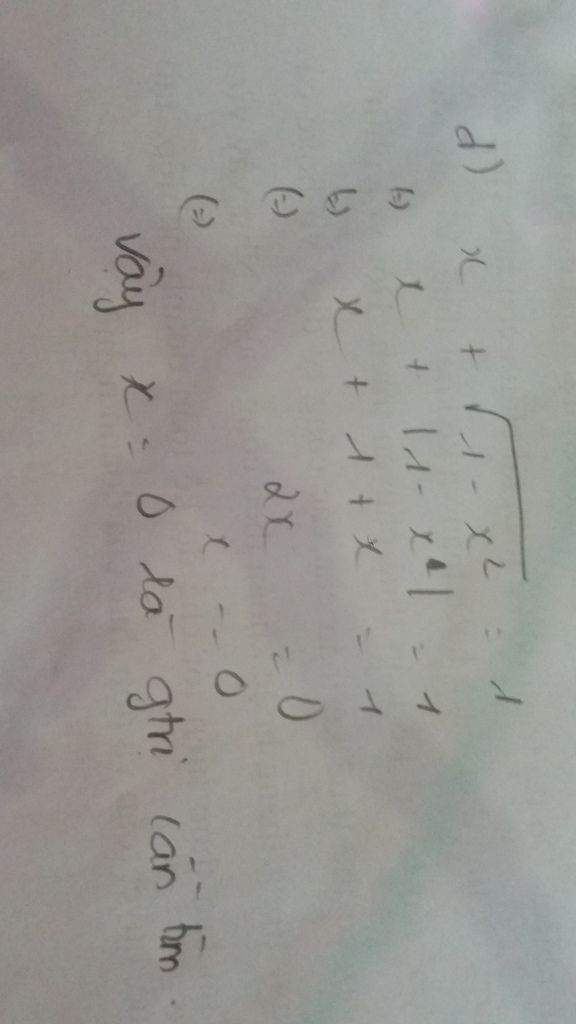 d) x + √1 - x² = 1
(=) x + |1 - x| = 1
(=) x + 1 + x = 1
(=) 2x = 0
(=) x = 0
vậy x = 0 là gtrị cần tìm.